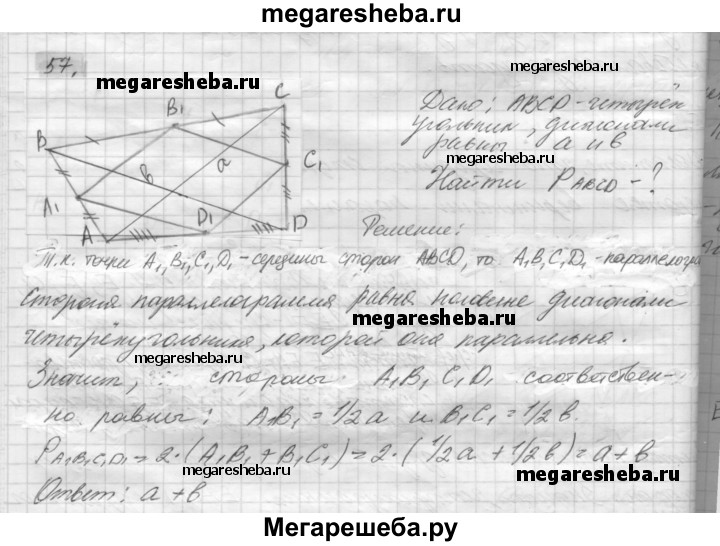 megaresheba.ru
57.
megaresheba.ru
B₁
C
B
a
в
C₁
A₁
D₁
A
D
megaresheba.ru
Дано: ABCD - четырёх
угольник, диагонали
равны a и в
megaresheba.ru
Найти P ABCD - ?
Решение:
Т.к. точки A₁, B₁, C₁, D₁ - середины сторон ABCD, то A₁B₁C₁D₁ - параллелогра
Сторона параллелограмма равна половине диагонали
megaresheba.ru
четырёхугольника, которой она параллельна.
megaresheba.ru
Значит, стороны A₁B₁C₁D₁ соответствен-
но равны: A₁B₁ = 1/2a и B₁C₁ = 1/2в.
P A₁B₁C₁D₁ = 2·(A₁B₁ + B₁C₁) = 2·(1/2a + 1/2в) = a + в
megaresheba.ru
megaresheba.ru
Ответ: a + в
Мегарешеба.ру